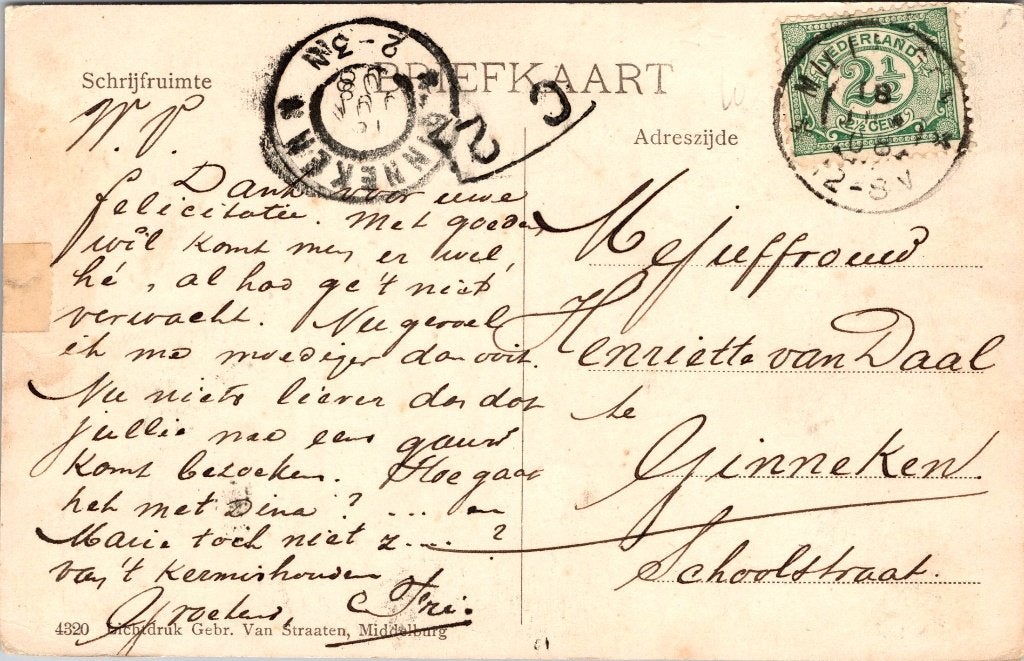 Schrijfruimte
BRIEFKAART
Adreszijde
NEDERLAND
2½
2½ CENT
GINNEKEN
2-3N
12-8V
W. P.
Dank voor uwe
felicitatie. Met goeden
wil komt men er wel,
hé, al had ge 't niet
verwacht. Nu gevoel
ik me moediger dan ooit.
Nu niets liever dan dat
jullie me eens gauw
komt bezoeken. Hoe gaat
het met Dina? ... en
Marie toch niet z.... ?
van 't kermishouden
Groetend,
Mejuffrouw
Henriette van Daal
te
Ginneken.
Schoolstraat.
4320 Lichtdruk Gebr. Van Straaten, Middelburg